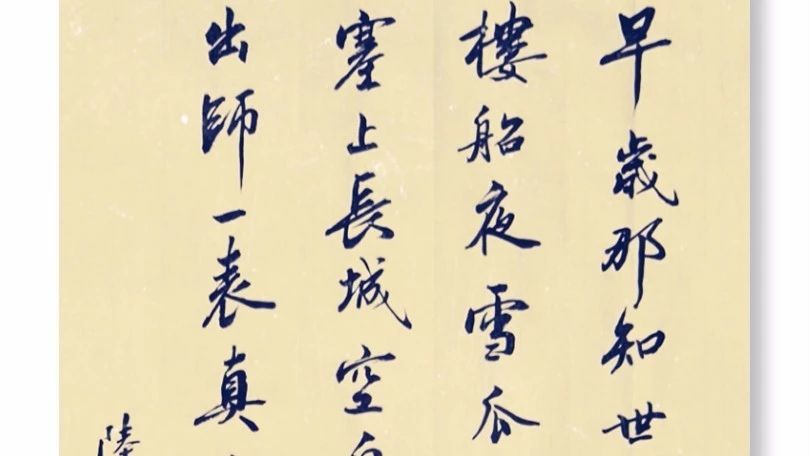 早歲那知世
樓船夜雪瓜
塞上長城空自
出師一表真
陸